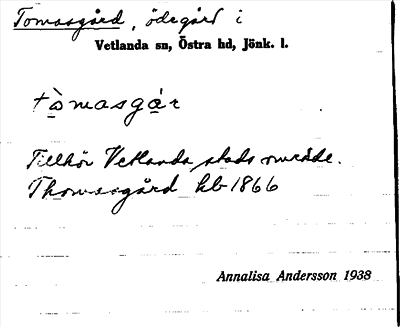 Tomasgård, ödegård i
Vetlanda sn, Östra hd, Jönk. l.
tòmasgår
Tillhör Vetlanda stads område.
Thomasgård hb 1866
Annalisa Andersson 1938